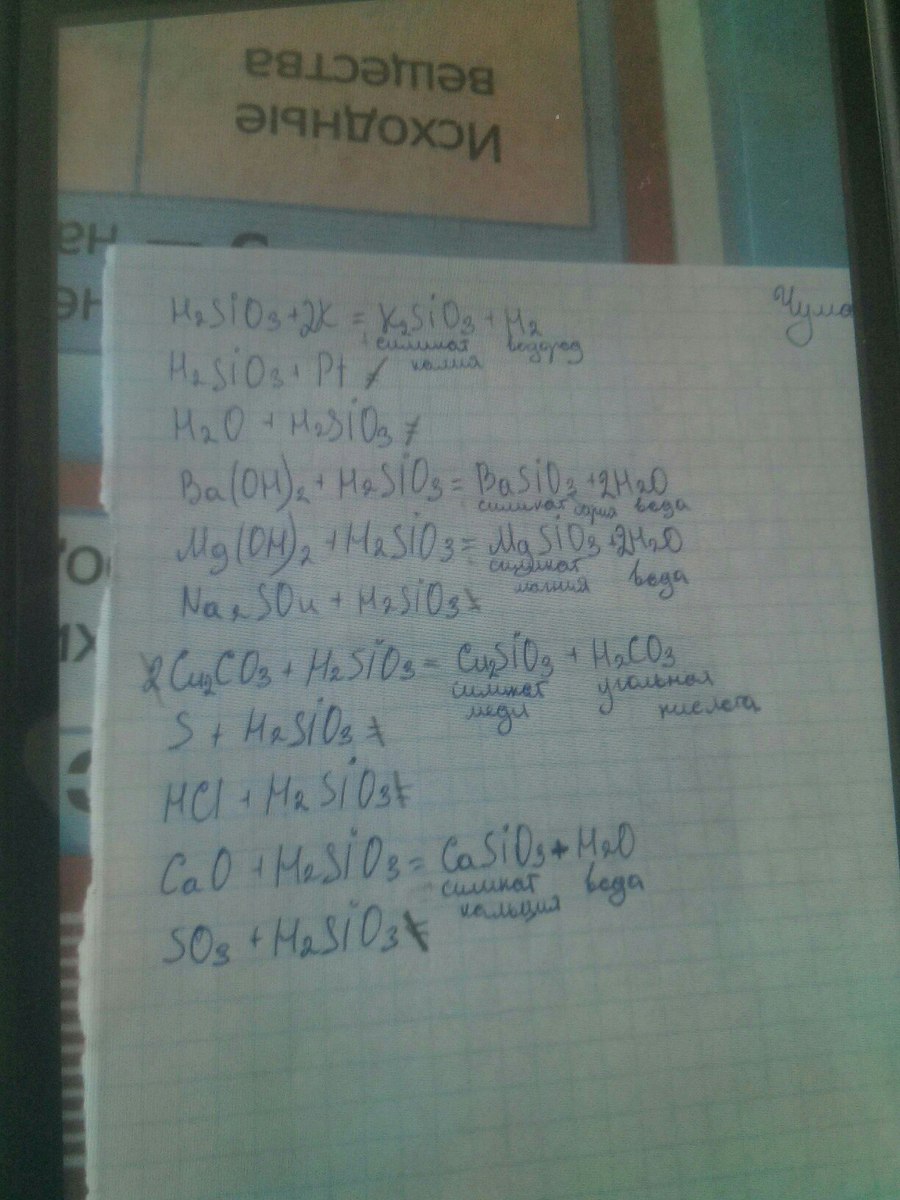 Исходные
вещества
— на
H₂SiO₃ + 2K = K₂SiO₃ + H₂
силикат водород
калия
H₂SiO₃ + Pt ≠
H₂O + H₂SiO₃ ≠
Ba(OH)₂ + H₂SiO₃ = BaSiO₃ + 2H₂O
силикат бария вода
Mg(OH)₂ + H₂SiO₃ = MgSiO₃ + 2H₂O
силикат вода
магния
Na₂SO₄ + H₂SiO₃ ≠
Cu₂CO₃ + H₂SiO₃ = Cu₂SiO₃ + H₂CO₃
силикат угольная
меди кислота
S + H₂SiO₃ ≠
HCl + H₂SiO₃ ≠
CaO + H₂SiO₃ = CaSiO₃ + H₂O
силикат вода
кальция
SO₃ + H₂SiO₃ ≠